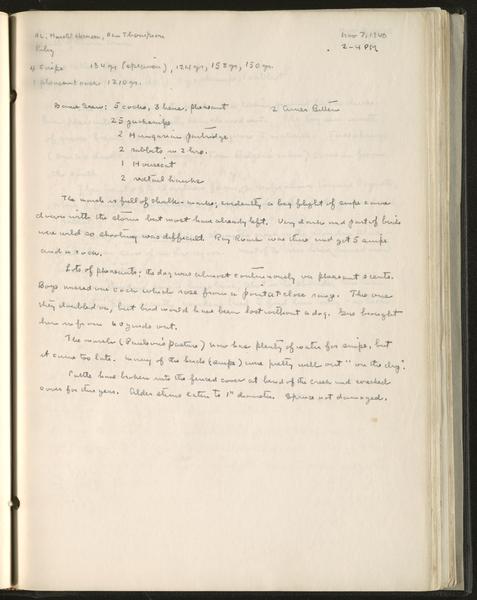 AL, Harold Hanson, Ben Thompson Nov 7, 1940
Riley 2-4 PM
4 snipe 134 gr (specimen), 124 gr, 158 gr, 150 gr.
1 pheasant cock 1210 gr.
Game Seen: 5 cocks, 3 hens, pheasant 2 Amer Bittern
25 jacksnipe
2 Hungarian partridge
2 rabbits in 2 hrs.
1 Housecat
2 redtail hawks
The marsh is full of chalk-marks; evidently a big flight of snipe came
down with the storm but most have already left. Very dark and part of birds
were wild so shooting was difficult. Roy Roark was there and got 5 snipe
and a cock.
Lots of pheasants; the dog was almost continuously on pheasant scents.
Boys missed one cock which rose from a point at close range. The one
they doubled on, but bird would have been lost without a dog. Gus brought
him in from 40 yards out.
The marsh (Paulson's pasture) now has plenty of water for snipe, but
it came too late. Many of the birds (snipe) were pretty well out "on the dry".
Cattle have broken into the fenced cover at bend of the creek and wrecked
cover for this year. Alder stems eaten to 1" diameter. Spruce not damaged.